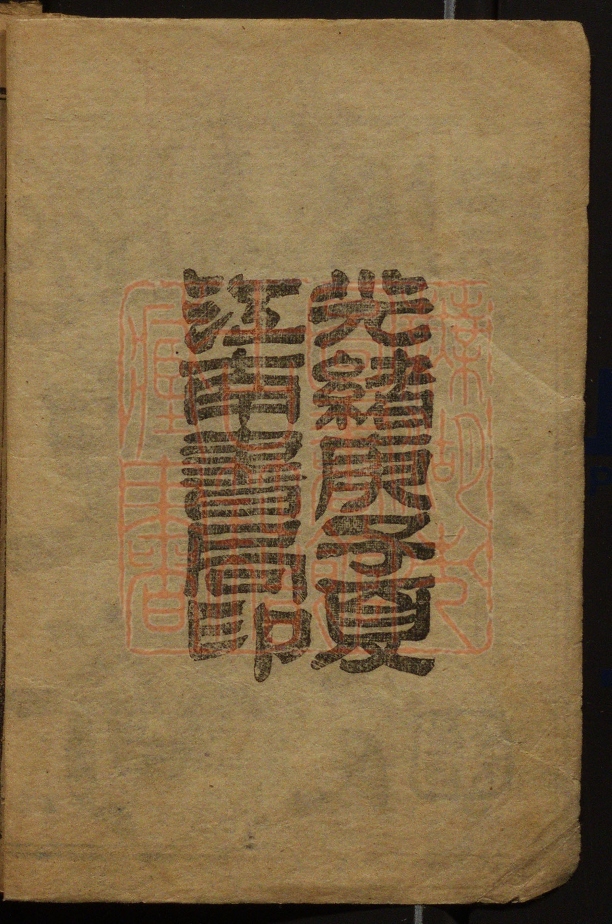 光緒庚子夏
江南書局印